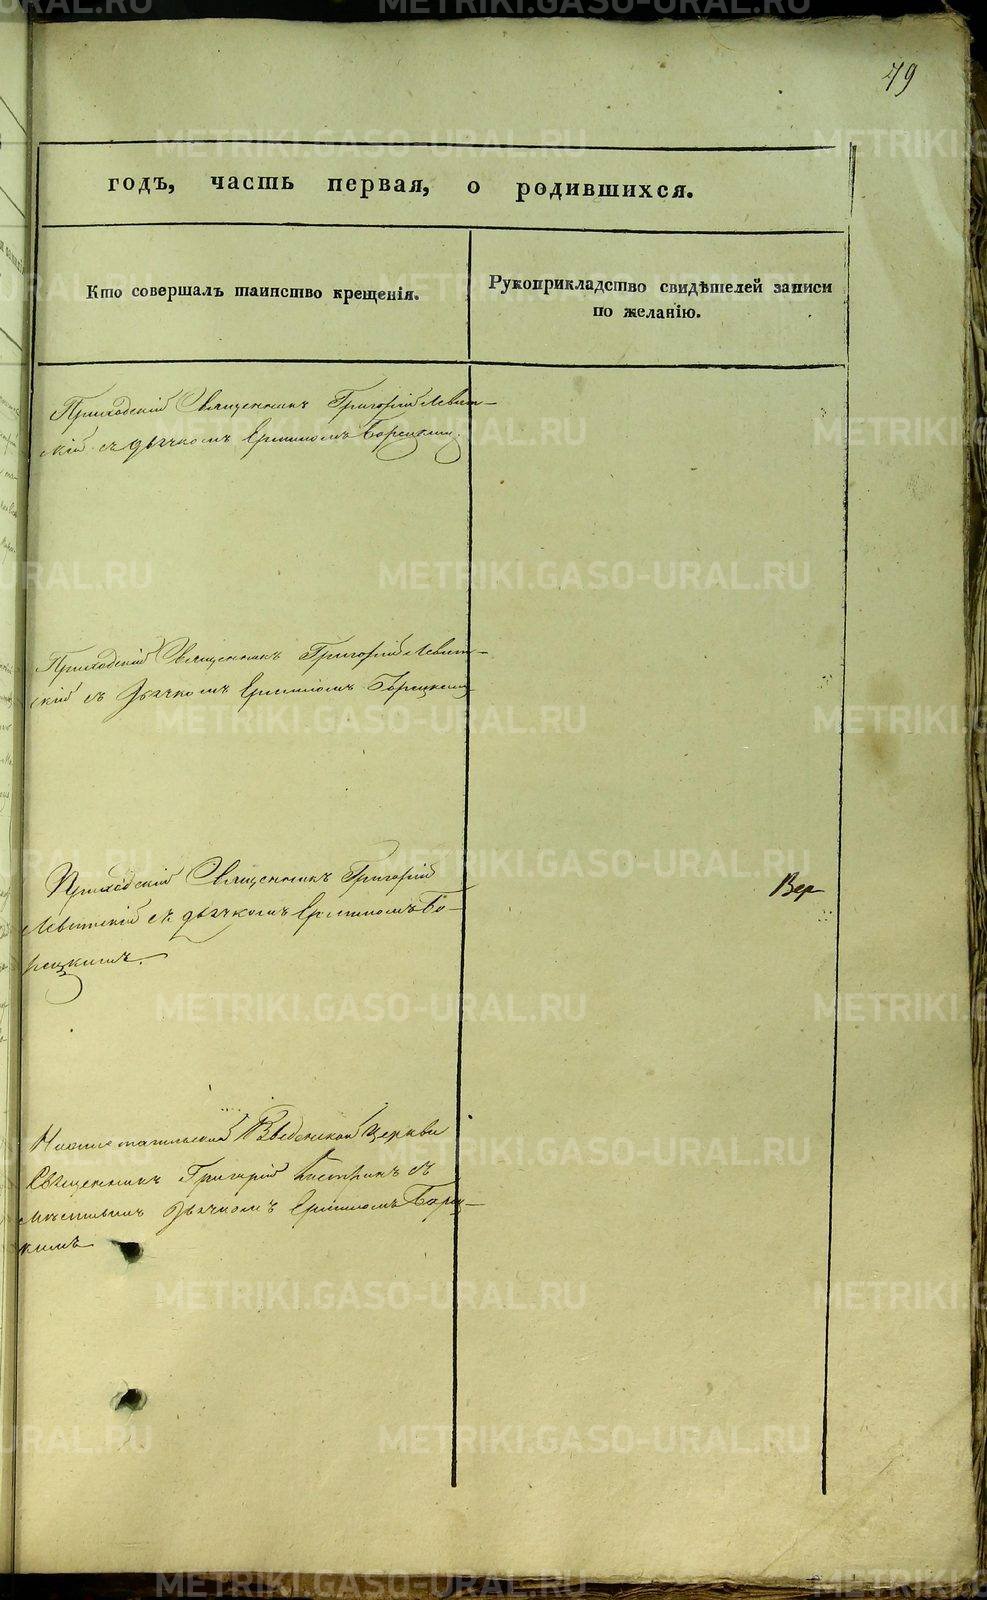 79
годъ, часть первая, о родившихся.
Кто совершалъ таинство крещенія.
Рукоприкладство свидѣтелей записи
по желанію.
Приходскій Священникъ Григорій Левит-
скій съ дьячкомъ Борецкимъ.
Приходскій Священникъ Григорій Левит-
скій съ Дьячкомъ Борецкимъ
Приходскій Священникъ Григорій
Левитскій съ дьячкомъ Бо-
рецкимъ.
Вер
Нижнетагильской Введенской Церкви
Священникъ Григорій съ
мѣстнымъ Дьячкомъ Борец-
кимъ
METRIKI.GASO-URAL.RU